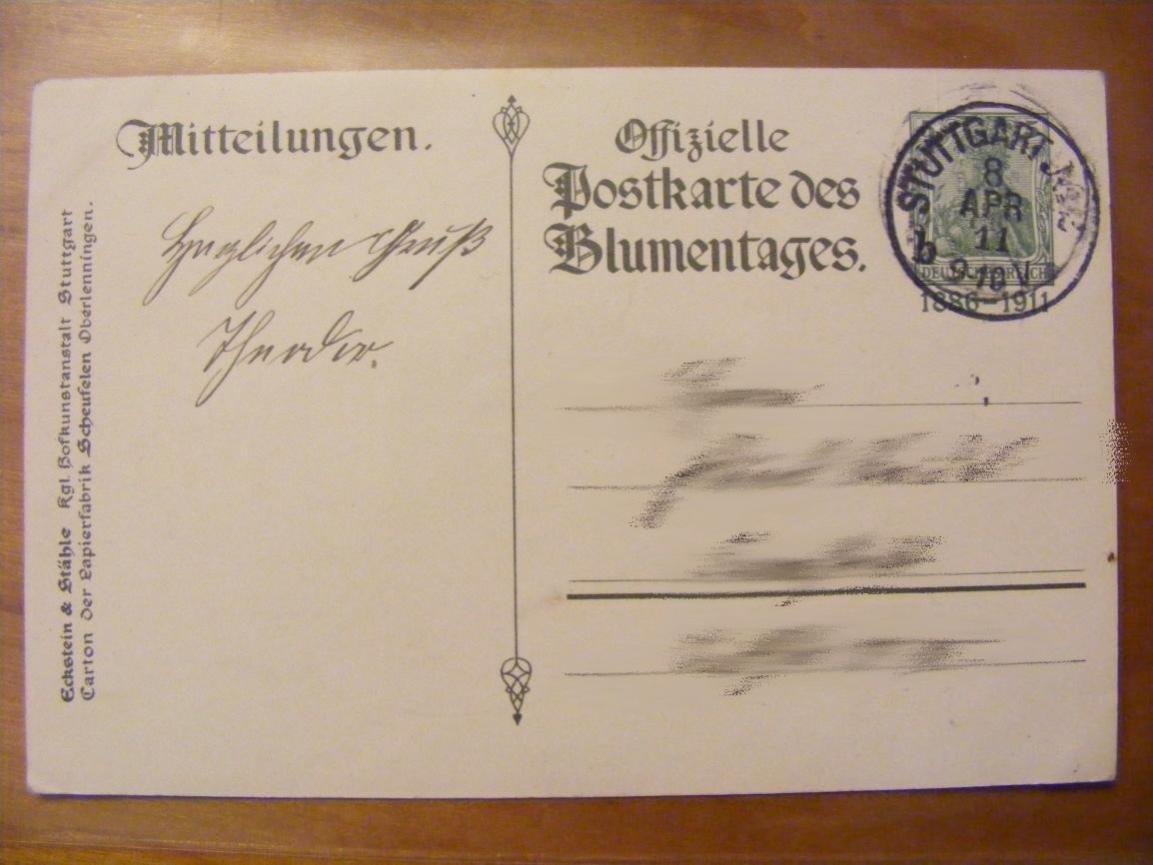 Mitteilungen.
Herzlichen Gruß
Theodor.
Offizielle
Postkarte des
Blumentages.
STUTTGART
8
APR
11
b 9-10 V
DEUTSCHES REICH
1886-1911
Eckstein & Stähle Kgl. Hofkunstanstalt Stuttgart
Carton der Papierfabrik Scheufelen Oberlenningen.